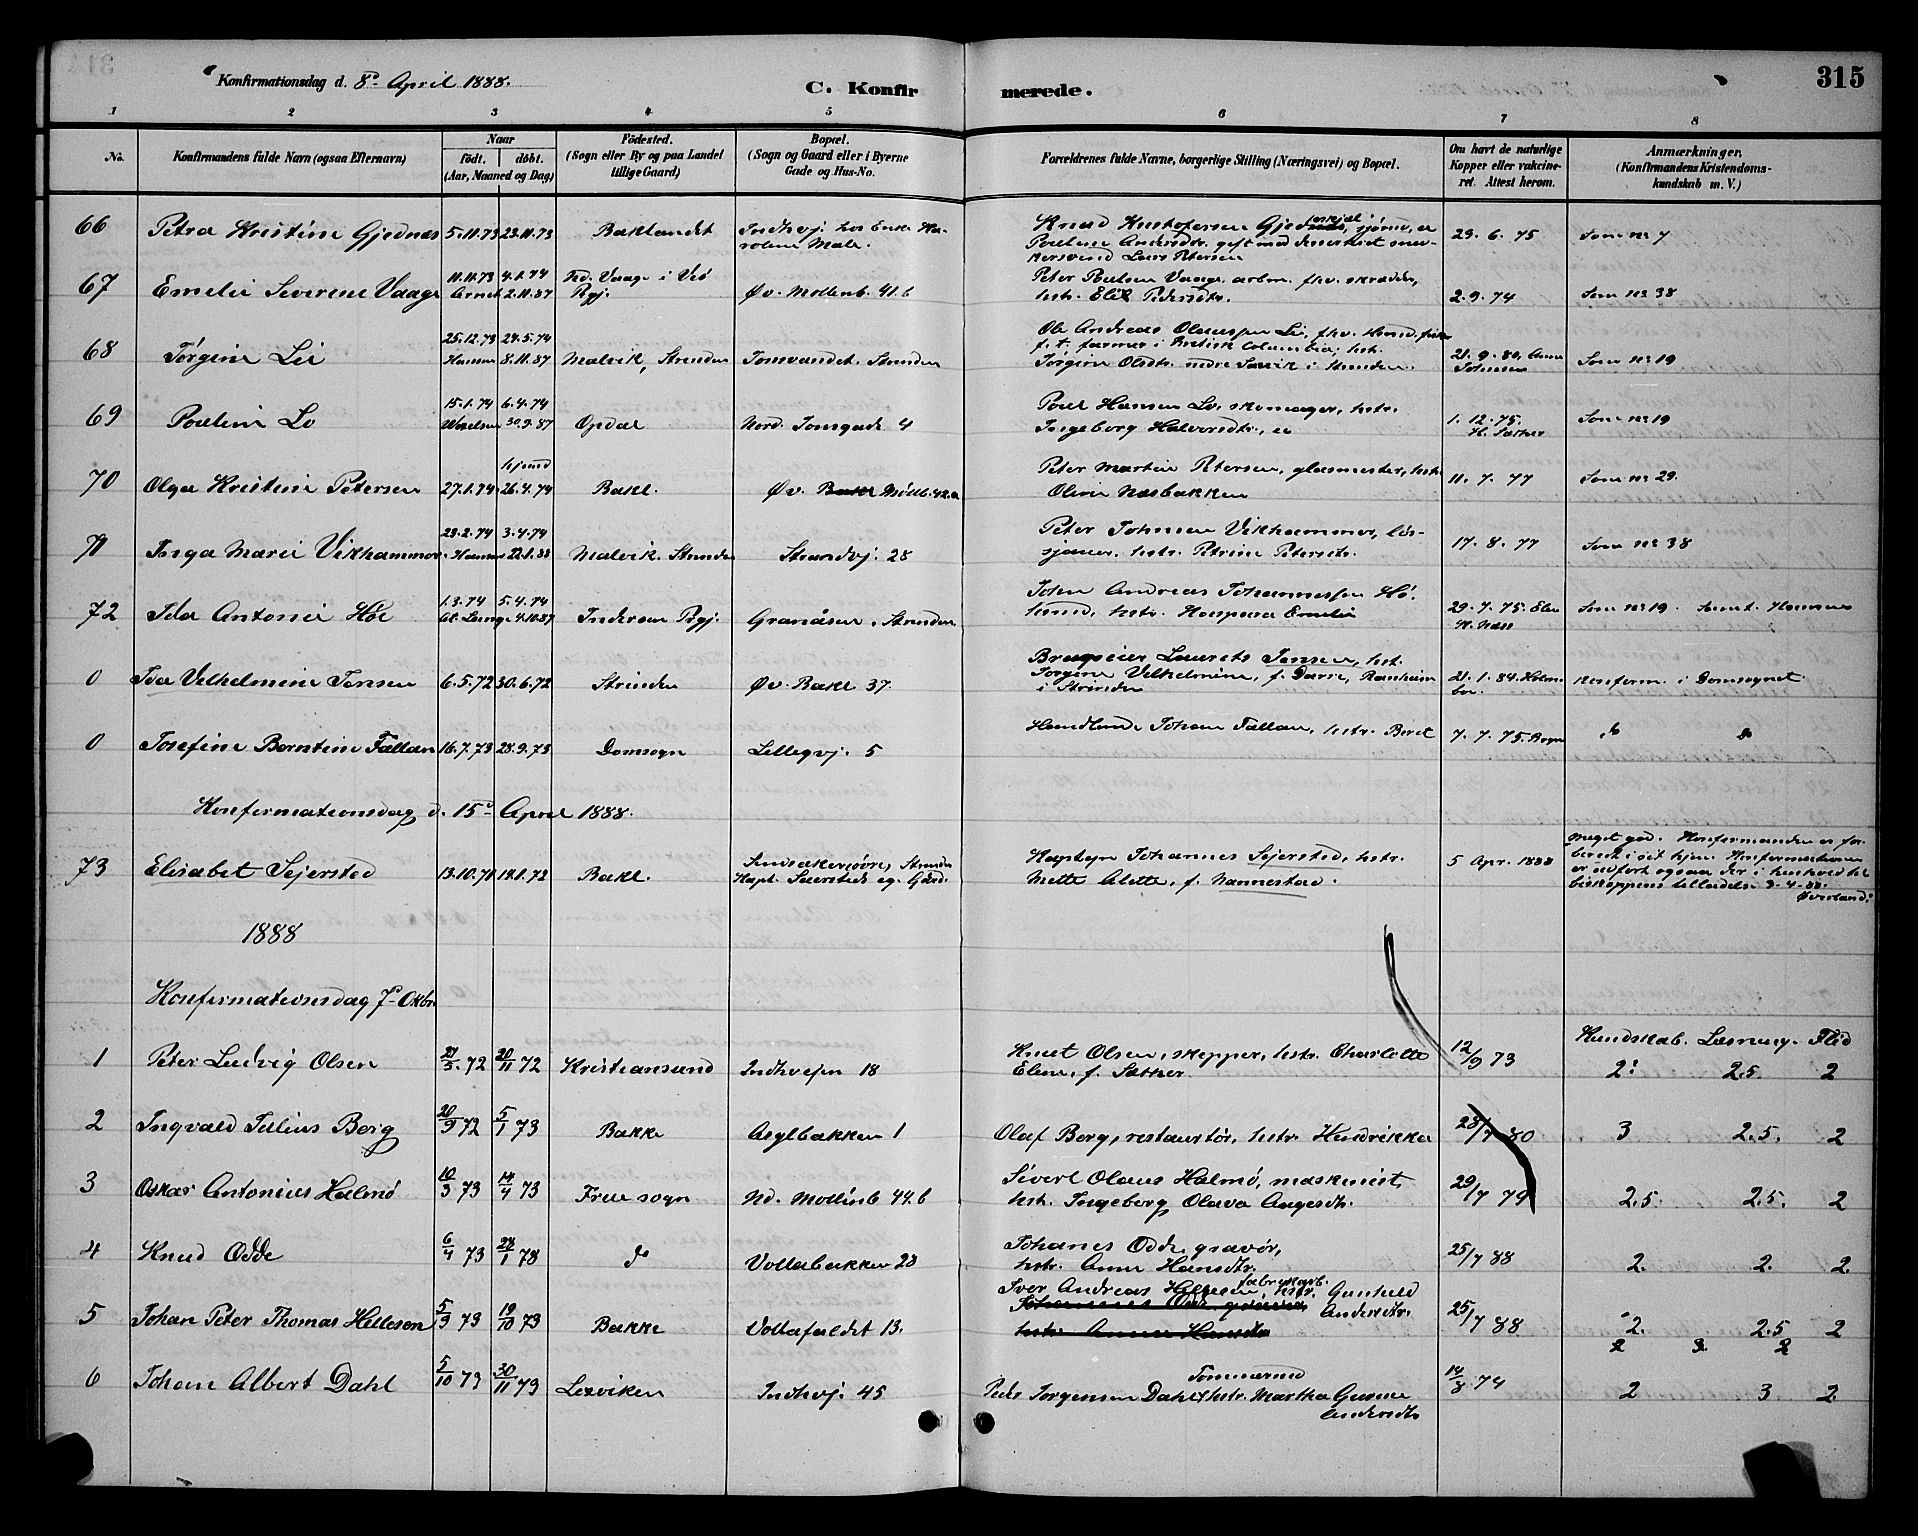 Konfirmationsdag d. 8de April 1888.
C. Konfirmerede.
315
1 2 3 4 5 6 7 8
No.
Konfirmandens fulde Navn (ogsaa Efternavn)
Naar
födt. döbt.
(Aar, Maaned og Dag)
Födested.
(Sogn eller By og paa Landet
tillige Gaard)
Bopæl.
(Sogn og Gaard eller i Byerne
Gade og Hus-No.
Forældrenes fulde Navne, borgerlige Stilling (Næringsvei) og Bopæl.
Om havt de naturlige
Kopper eller vakcine-
ret. Attest herom.
Anmærkninger.
(Konfirmandens Kristendoms-
kundskab m. V.)
66 Petra Kristine Gjednæs 5.11.73 23.11.73 Baklandet Indhvj. hos Enke Ka-
roline Male.
Knud Kristofersen Gjednæs, sjømd, 
Pouline Andersdtr. gift med
kersvend Lars Petersen
23.6.75 Som no 7
67 Emelie Severine Vaage 11.11.73 4.1.74
2.11.87 Vaage i Vei
Pgj. Øv. Mollenb. 41.b
Peter Poulsen Vaage. arbm. fhv. skrædder,
hstr. Elik Pedersdtr.
2.9.74 Som no 38
68 Jørgine Lei 25.12.73 24.5.74
Hansen 8.11.87 Malvik, Strinden Jonsvandet. Strinden
Ole Andreas Olaussen Lei, fhv. Hmd,
f. t. farmer i Britisk Columbia, hstr.
Jørgine Olsdtr. nedre Savik i Strinden.
21.9.80, Anne
Johnsen Som no 19
69 Pouline Lo 15.1.74 6.4.74
Wexelsen 30.9.87 Opdal Nord. Jonsgade 4
Poul Hansen Lo, skomager, hstr.
Ingeborg Halvorsdtr.,
1.12.75.
H. Sæther Som no 19
70 Olga Kristine Petersen 27.1.74 hjemd
26.4.74 Bakl. Øv. Bakl Möllb. 42.a
Peter Martin Petersen, glasmester, hstr.
Oline Næsbakken
11.7.77 Som no 29.
71 Inga Marie Vikhammer 23.2.74 3.4.74
Hansen 22.1.88 Malvik. Strinden Strandvj. 28
Peter Johnsen Vikhammer, løs-
sjouer, hstr. Petrine Petersdtr.
17.8.77 Som no 38
72 Ida Antonie Höe 1.3.74 5.4.74
4.10.87 Inderøen Pgj. Granåsen, Strinden
John Andreas Johannessen Hö.
hmd, hstr. Kaspara Emelie
29.7.75. Elen
H. Næss Som no 19.
0 Ida Vilhelmine Jensen 6.5.72 30.6.72 Strinden Øv. Bakl 37.
Brugseier Laurits Jensen, hstr.
Jørgine Vilhelmine, f. Darre, Ranheim
i Strinden
21.1.84. Holm-
boe. Konferm. i Domsognet
0 Josefine Berntine Fallan 16.7.73 28.9.73 Domsogn Lillegvj. 5
Handlende Johan Fallan, hstr. Beret 7.7.75. Bryn do do
Konfermationsdag d. 15de April 1888.
73 Elisabet Sejersted 13.10.71 18.1.72 Bakl.
Kapt. Seiersteds eg. Gård.
Kaptejn Johannes Sejersted, hstr.
Mette Alette, f. Nannestad.
5 Apr. 1888
Meget god. Konfermanden er for-
beredt i sit hjem. Konfermationen
er udført ogsaa der i henhold til
biskoppens tilladelse 3-4-88.
Øverland.
1888
Konfermationsdag 7de Oktbr
Kundskab. Læsning. Flid
1 Peter Ludvig Olsen 21/3 72 20/11 72 Kristiansund Indhvejen 18
Knut Olsen, skipper, hstr. Charlotte
Eline, f. Sæther.
12/9 73 2. 2.5. 2
2 Ingvald Julius Berg 20/9 72 5/1 73 Bakke Asylbakken 1
Olaf Berg, restauratør, hstr. Hendrikke 28/7 80 3 2.5. 2
3 Oskar Antonius Halmö 10/3 73 14/4 73 Frue sogn Nd. Mollenb 44.b
Sivert Olaus Halmö, maskinist,
hstr. Ingeborg Olava Aagesdtr.
29/7 79 2.5. 2.5. 2
4 Knud Odde 6/4 73 28/1 78 do Vollabakken 28
Johanes Odde, gravör,
hstr. Anne Hansdtr.
25/7 88 2. 2. 2.
5 Johan Peter Thomas Hillesen 5/9 73 19/10 73 Bakke Vollafaldet 13.
Iver Andreas Hillesen, fabrikarb. hstr. Gunhild
Andersdtr.
Johannes Odde, gravør
hstr. Anne Hansdtr
25/7 88 2. 2.5 2
2 3. 2
6 Johan Albert Dahl 5/10 73 30/11 73 Lexviken Indhvj. 45
Tömmermd
Peder Jörgensen Dahl, hstr. Martha Gurine
Andersdtr
14/8 74 2 3 2.